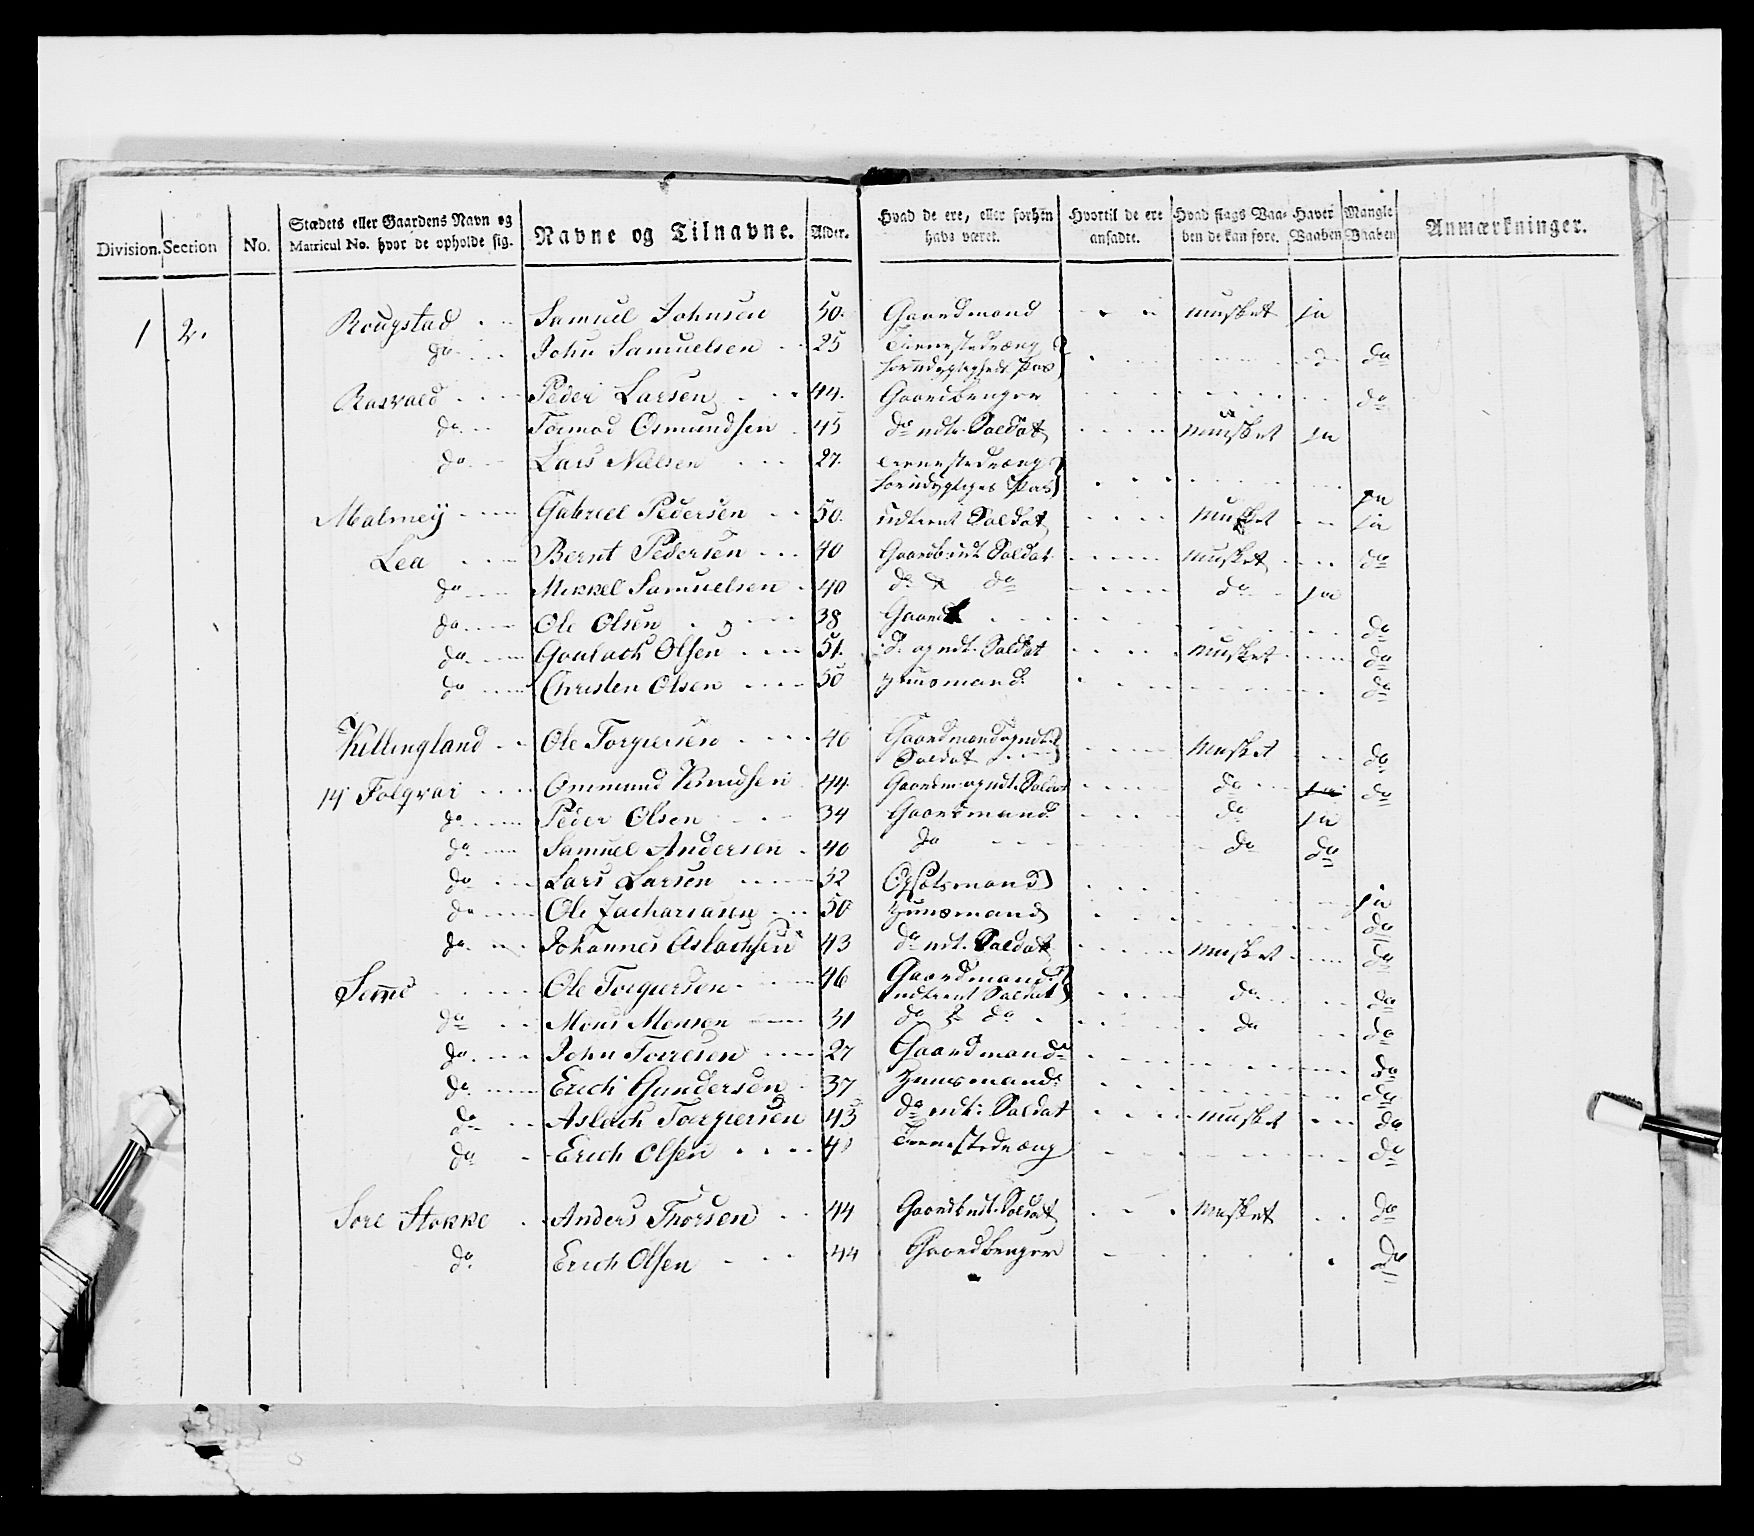 Division. Section No. Stædets eller Gaardens Navn og Matricul No. hvor de opholde sig. Navne og Tilnavne. Alder. Hvad de ere, eller forhen havs været. Hvortil de ere ansadte. Hvad slags Vaaben de kan føre. Haver Vaaben Mangle Vaaben Anmærkninger.
1 2. Rougstad Samuel Johnsen 50. Gaardmand musket ja
do John Samuelsen 25 Tienestedræng do
Pas
Rosvold Peder Larsen 44. Gaardbruger do
do Tormod Osmundsen 45 do udt. Soldat musket ja
do Lars Nielsen 27. Tienestedræng
Pas ja
Malmey Gabriel Pedersen 50. udtient Soldat musket ja
Lea Bernt Pedersen 40 Gaardb. udt. Soldat musket do
do Mikkel Samuelsen 40 do & do do ja
do Ole Olsen 38 Gaard do
do Gaulach Olsen 51. do og udt. Soldat musket do
do Christen Olsen 50 Huusmand do
Killingland Ole Torgiersen 40 Gaardmand og udt.
Soldat musket do
14 Folqvar Ommund Knudsen 44. Gaardm. og udt. Soldat do ja do
do Peder Olsen 34 Gaardmand do ja
do Samuel Andersen 40 do do do
do Lars Larsen 32 Opsidsmand ja
do Ole Zachariasen 50 Huusmand do
do Johannes Aslachsen 43 do udt. Soldat musket do
Semb Ole Torgiersen 46 Gaardmand
udtient Soldat do do
do Mons Monsen 31 do & do do do
do John Torresen 27 Gaardmand do
do Erich Gundersen 37 Huusmand do
do Aslach Torgiersen 43 do udt: Soldat musket do
do Erich Olsen Tienestedræng do
Søre Stokke Anders Thorsen 44 Gaardb. udt. Soldat musket do
do Erich Olsen 44 Gaardbruger do